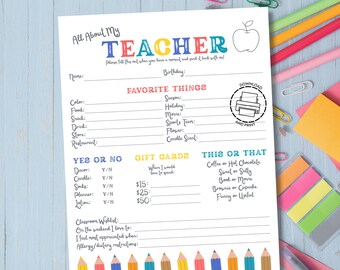 All About My
TEACHER
Please fill this out when you have a moment and send it back with me!
Name: Birthday:
FAVORITE THINGS
Color: Season:
Food: Holiday:
Snack: Movie:
Drink: Sports Team:
Store: Flower:
Restaurant: Candle Scent:
DOWNLOAD
AND PRINT
YES OR NO GIFT CARDS THIS OR THAT
Decor: Y/N When I would Coffee or Hot Chocolate
Candle: Y/N love to spend: Sweet or Salty
Socks: Y/N $15: Book or Movie
Planner: Y/N $25: Brownie or Cupcake
Lotion: Y/N $50: Funny or Useful
Classroom Wishlist:
On the weekend I love to:
I feel most appreciated when:
Allergy/dietary restrictions: